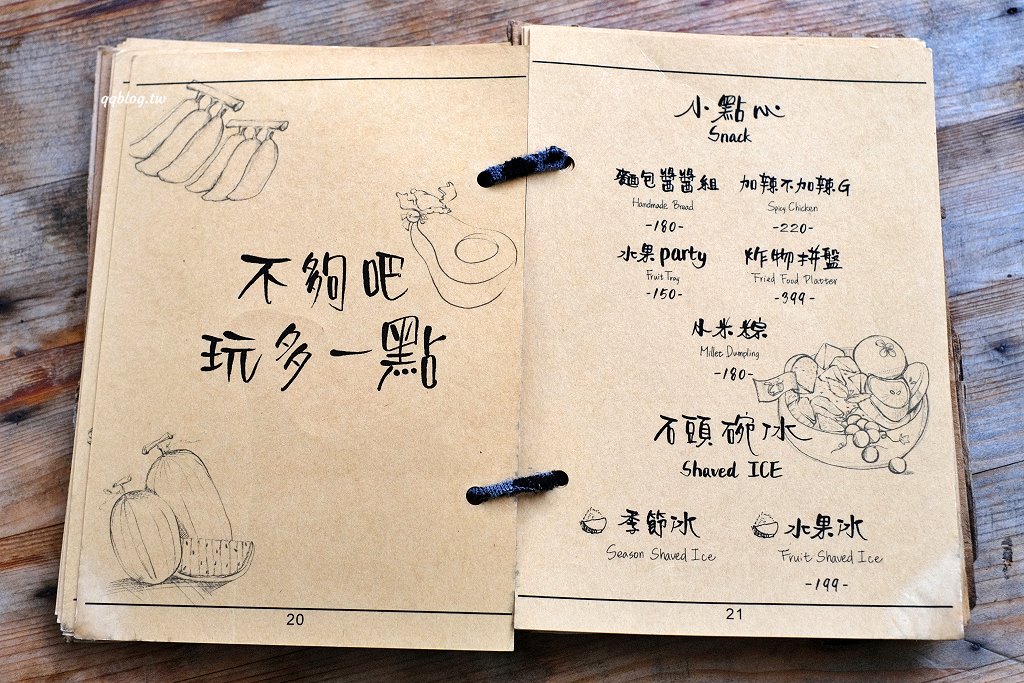 qqblog.tw
不夠吧
玩多一點
20
小點心
Snack
麵包醬醬組 加辣不加辣G
Handmade Bread Spicy Chicken
-180- -220-
水果party 炸物拼盤
Fruit Tray Fried Food Platter
-150- -399-
小米粽
Millet Dumpling
-180-
石頭碗冰
Shaved ICE
季節冰 水果冰
Season Shaved Ice Fruit Shaved Ice
-199-
21